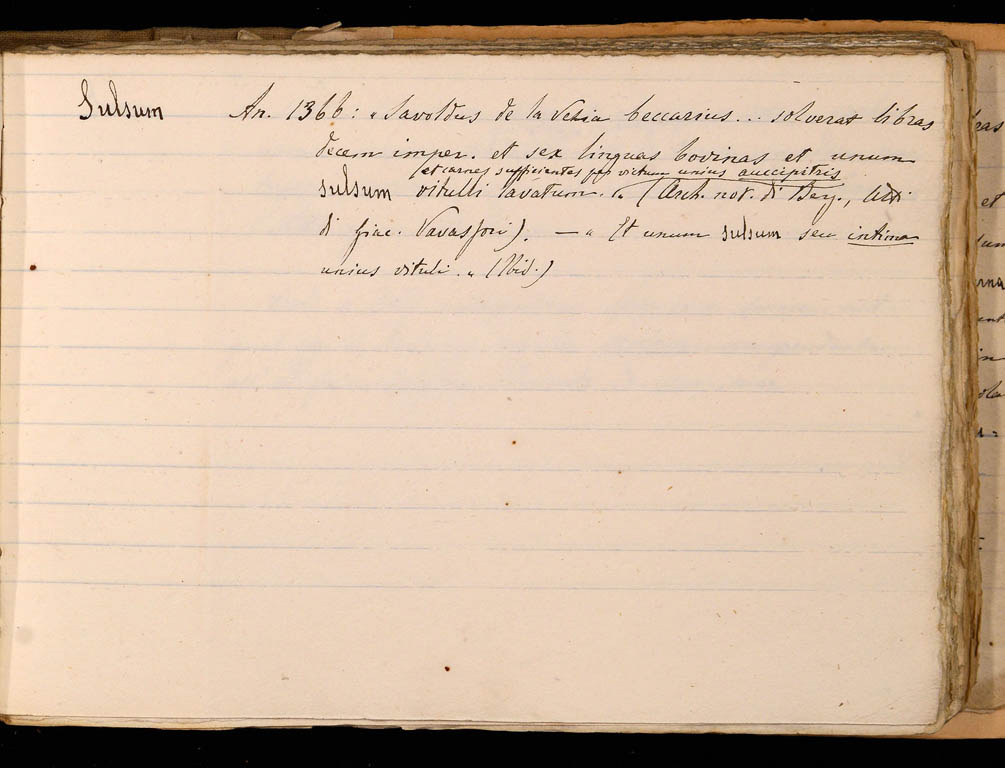 Sulsum An. 1366: "Savoldus de la Vezia beccarius... solverat libras
decem imper. et sex linguas bovinas et unum
et carnes sufficientes per victum unius auccipitris
sulsum vitulli lavatum. " (Arch. not. di Berg., Atti
di Giac. Vavassori). — " Et unum sulsum seu intima
unius vituli. " (Ibid.)
ras
et
sum